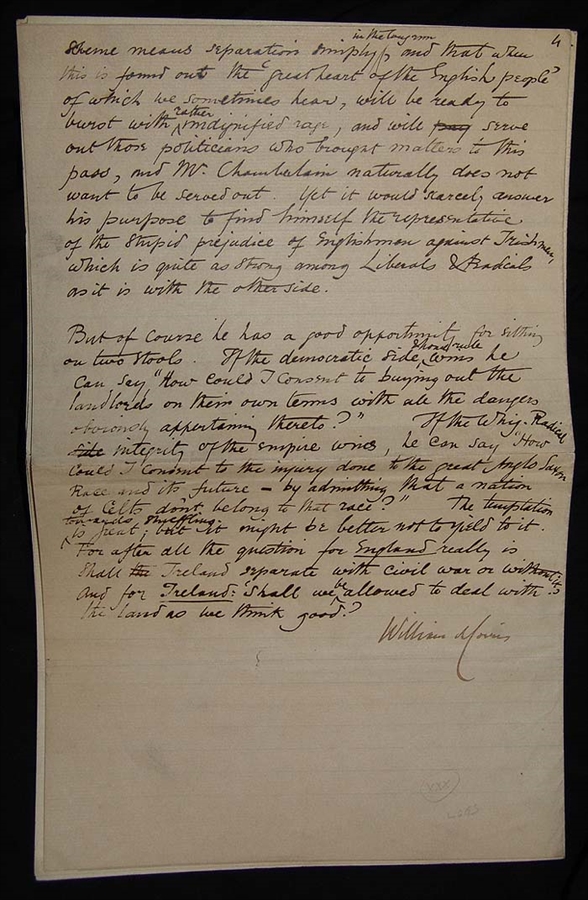 4
in the long run
Scheme means separation simply, and that when
this is found out the "great heart of the English people"
of which we sometimes hear, will be ready to
rather
burst with undignified rage, and will pay serve
out those politicians who brought matters to this
pass, and Mr. Chamberlain naturally does not
want to be served out. Yet it would scarcely answer
his purpose to find himself the representative
of the stupid prejudice of Englishmen against Irishmen,
which is quite as strong among Liberals & Radicals
as it is with the other side.
But of course he has a good opportunity for sitting
on two stools. If the democratic side, wins he
& home rule
can say "How could I consent to buying out the
landlords on their own terms with all the dangers
obviously appertaining thereto?" If the Whig-Radical
side integrity of the empire wins, he can say "How
could I consent to the injury done to the great Anglo Saxon
Race and its future – by admitting that a nation
of Celts dont belong to that race?" The temptation
towards shuffling
is great; but it might be better not to yield to it.
For after all the question for England really is
Shall the Ireland separate with civil war or without it?
And for Ireland: 'Shall we be allowed to deal with
the land as we think good?
William Morris